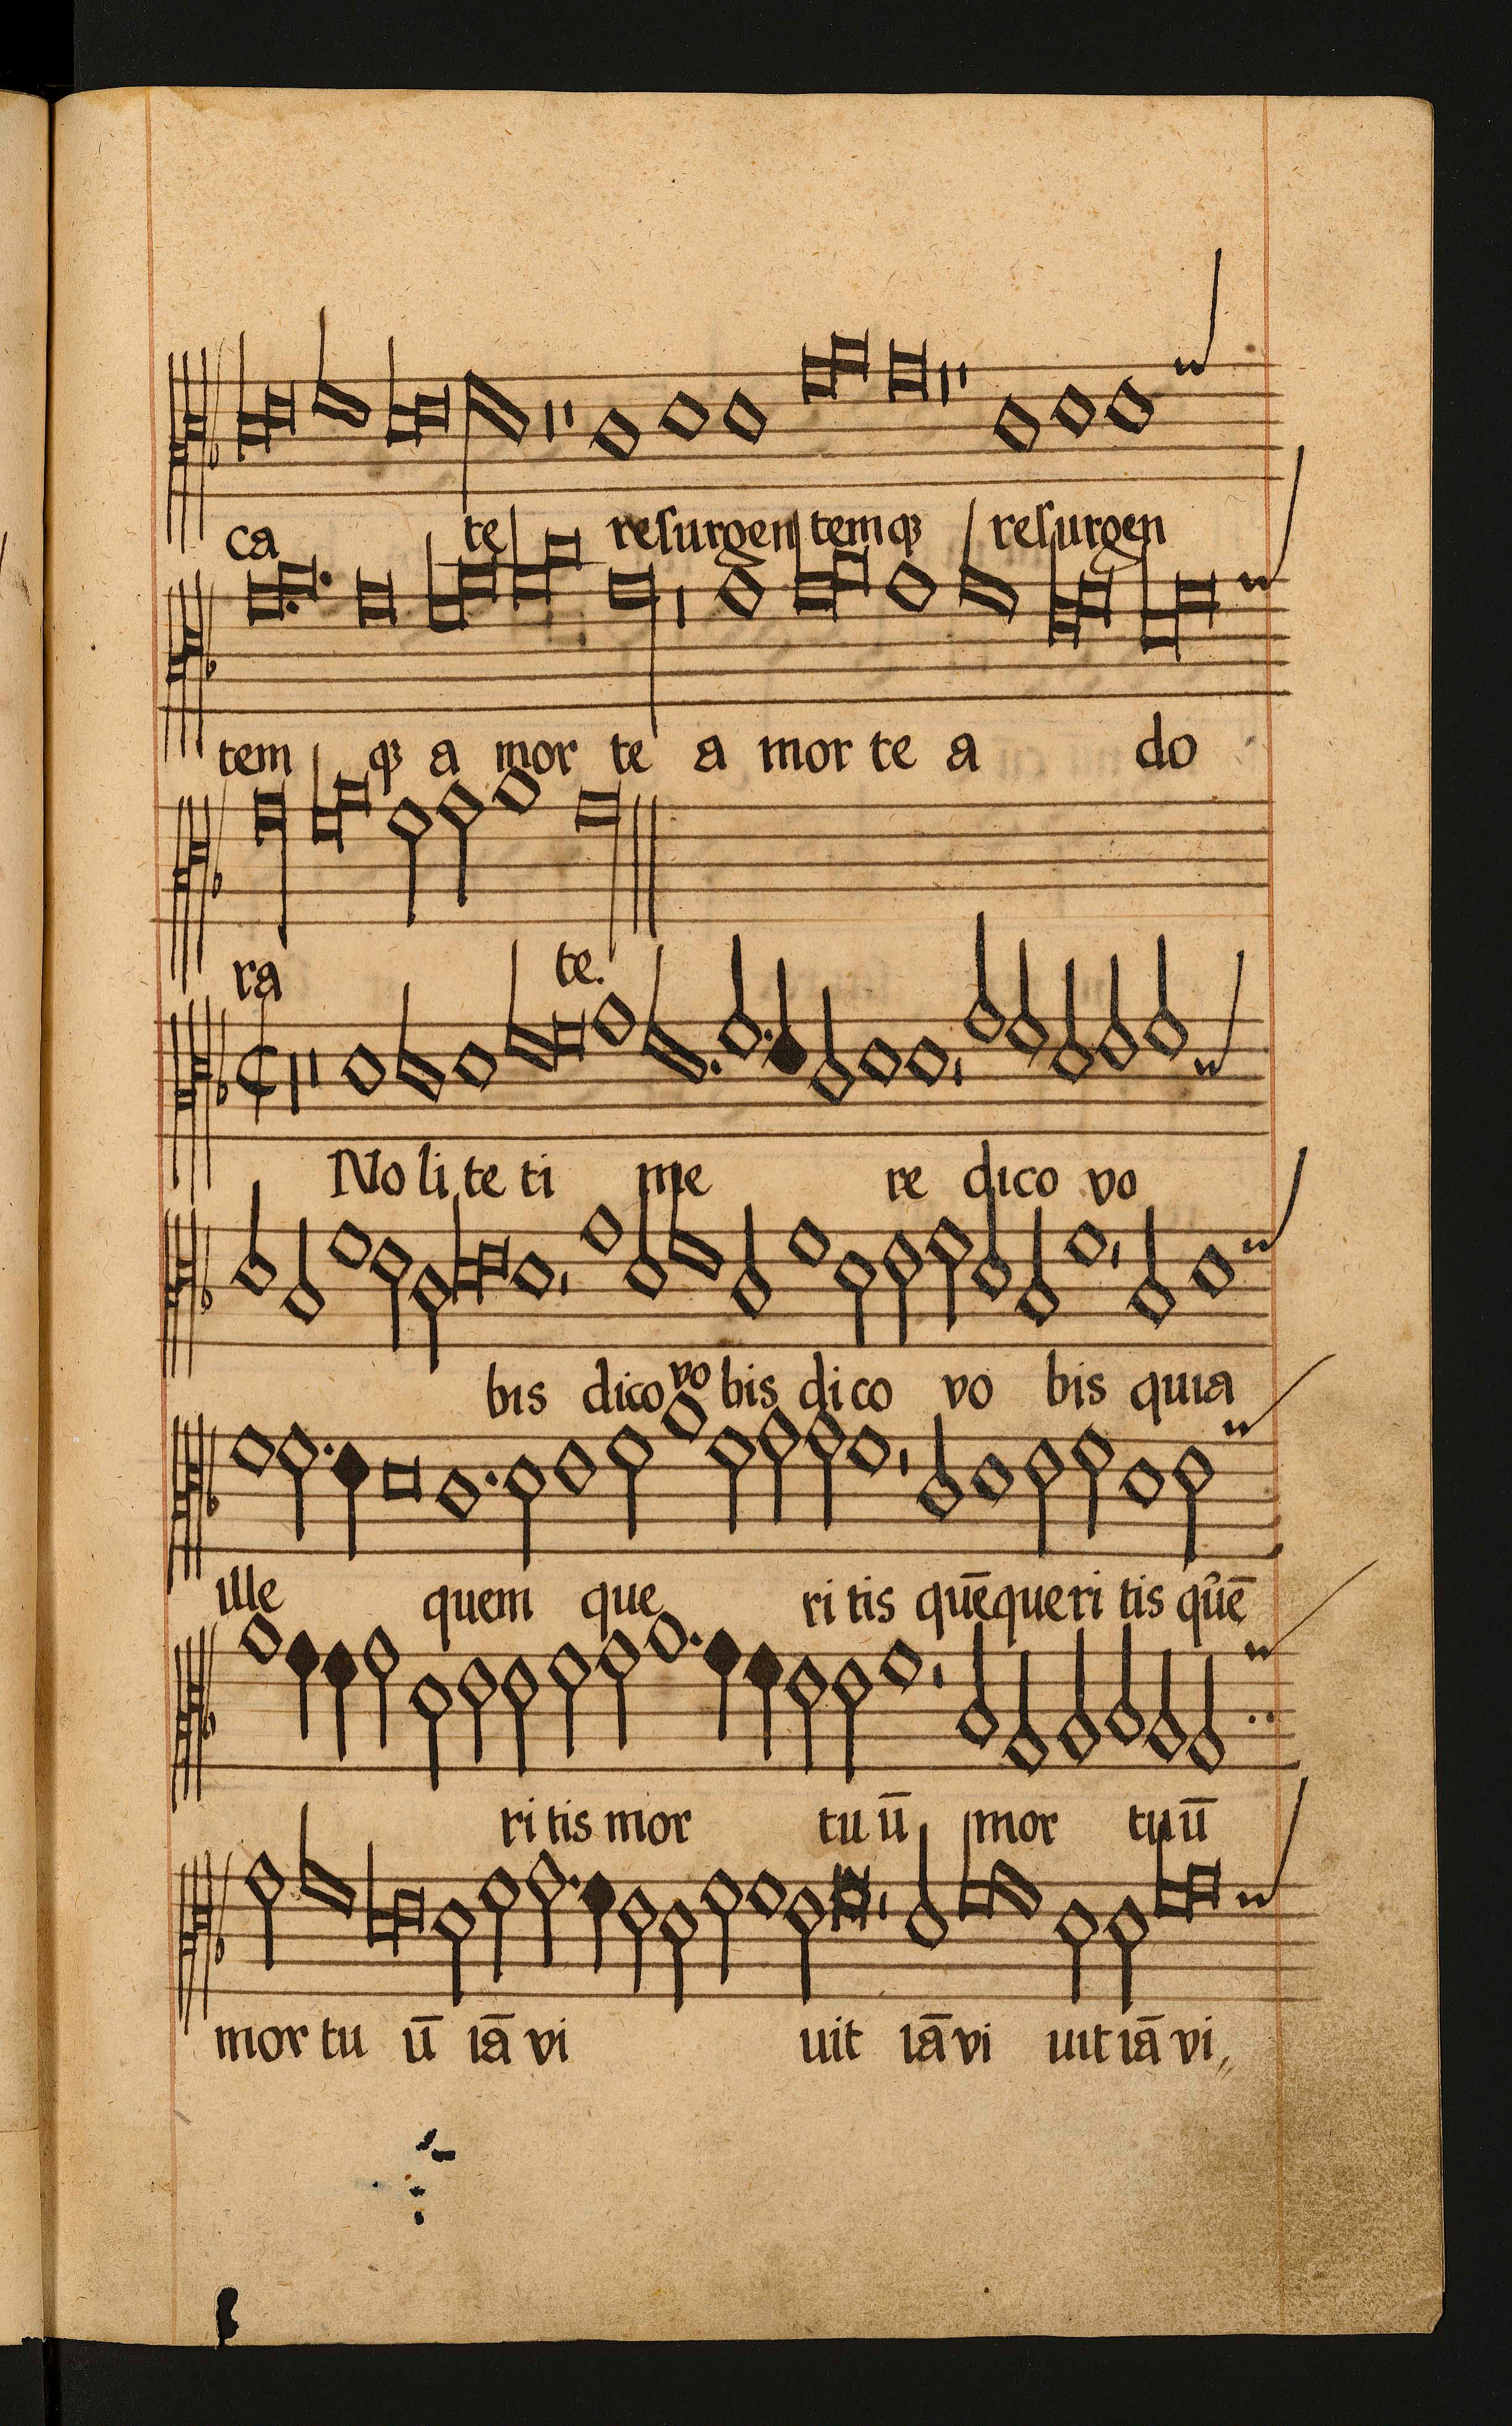 ca te resurgen temqꝫ resurgen
tem qꝫ a mor te a mor te a do
ra te.
No li te ti me re dico vo
bis dico vo bis di co vo bis quia
ille quem que ri tis quē queri tis quē
ri tis mor tu ū mor tu ū
mor tu ū iā vi uit iā vi uit iā vi